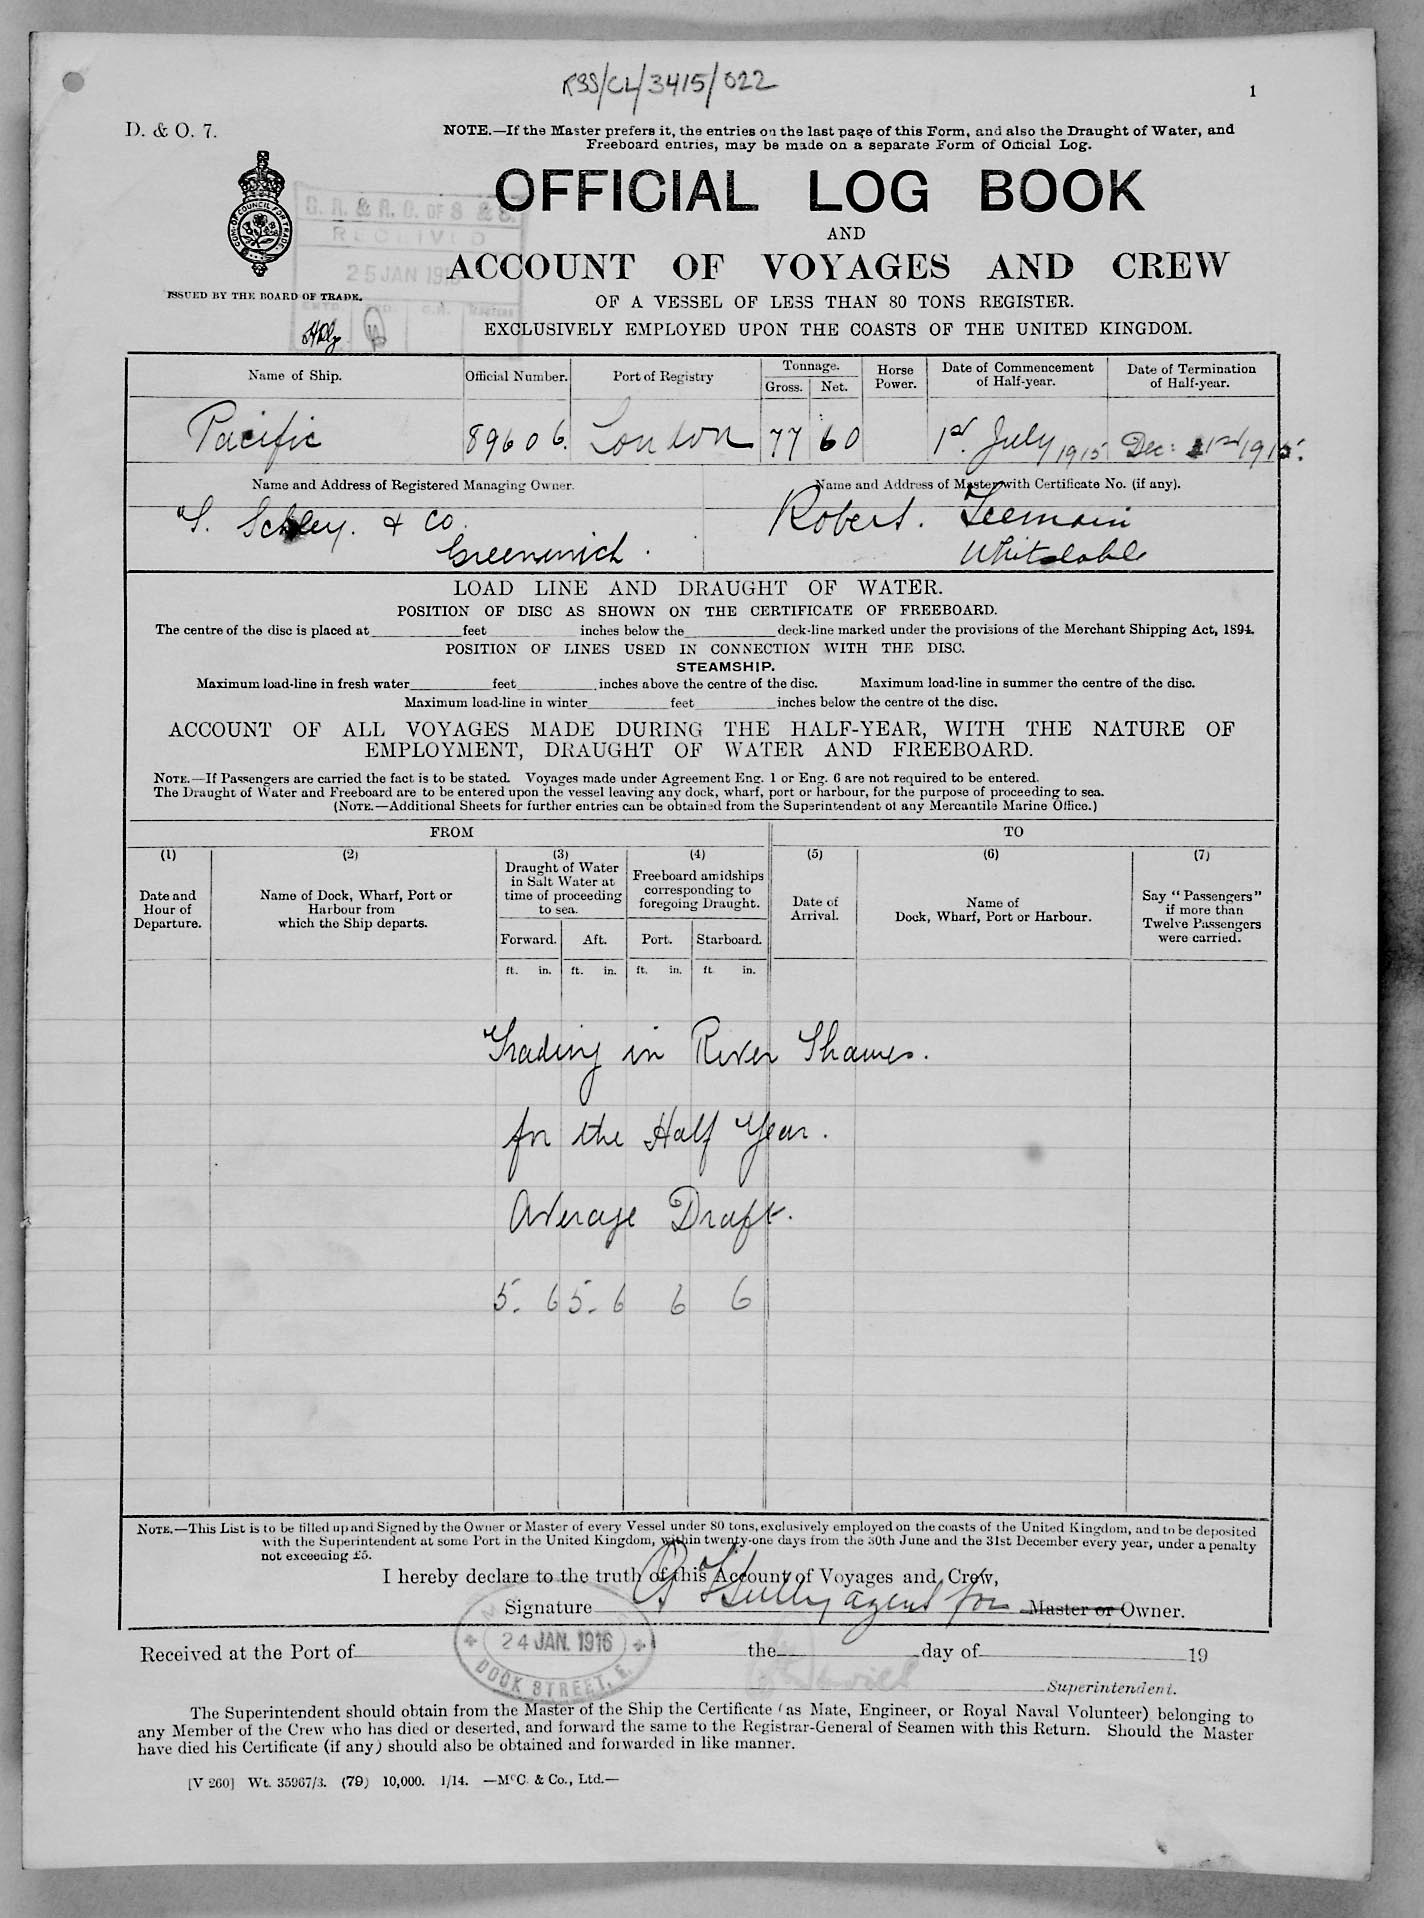 RSS/CL/3415/022
1
D. & O. 7.
NOTE.—If the Master prefers it, the entries on the last page of this Form, and also the Draught of Water, and
Freeboard entries, may be made on a separate Form of Official Log.
OFFICIAL LOG BOOK
AND
ACCOUNT OF VOYAGES AND CREW
OF A VESSEL OF LESS THAN 80 TONS REGISTER.
EXCLUSIVELY EMPLOYED UPON THE COASTS OF THE UNITED KINGDOM.
COM. OF COUNCIL FOR TRADE
ISSUED BY THE BOARD OF TRADE.
RECEIVED
25 JAN 1916
Name of Ship. Official Number. Port of Registry Tonnage. Gross. Net. Horse Power. Date of Commencement of Half-year. Date of Termination of Half-year.
Pacific 89606. London 77 60 1st July 1915 Dec: 31st 1915.
Name and Address of Registered Managing Owner. Name and Address of Master with Certificate No. (if any).
& Co. Robert.
Greenwich. Whitstable
LOAD LINE AND DRAUGHT OF WATER.
POSITION OF DISC AS SHOWN ON THE CERTIFICATE OF FREEBOARD.
The centre of the disc is placed at feet inches below the deck-line marked under the provisions of the Merchant Shipping Act, 1894.
POSITION OF LINES USED IN CONNECTION WITH THE DISC.
STEAMSHIP.
Maximum load-line in fresh water feet inches above the centre of the disc. Maximum load-line in summer the centre of the disc.
Maximum load-line in winter feet inches below the centre of the disc.
ACCOUNT OF ALL VOYAGES MADE DURING THE HALF-YEAR, WITH THE NATURE OF
EMPLOYMENT, DRAUGHT OF WATER AND FREEBOARD.
NOTE.—If Passengers are carried the fact is to be stated. Voyages made under Agreement Eng. 1 or Eng. 6 are not required to be entered.
The Draught of Water and Freeboard are to be entered upon the vessel leaving any dock, wharf, port or harbour, for the purpose of proceeding to sea.
(NOTE.—Additional Sheets for further entries can be obtained from the Superintendent of any Mercantile Marine Office.)
FROM TO
(1) (2) (3) (4) (5) (6) (7)
Date and Hour of Departure.
Name of Dock, Wharf, Port or Harbour from which the Ship departs.
Draught of Water in Salt Water at time of proceeding to sea.
Freeboard amidships corresponding to foregoing Draught.
Date of Arrival.
Name of Dock, Wharf, Port or Harbour.
Say "Passengers" if more than Twelve Passengers were carried.
Forward. Aft. Port. Starboard.
ft. in. ft. in. ft. in. ft. in.
Trading in River Thames.
for the Half Year.
Average Draft.
5. 6 5. 6 6 6
NOTE.—This List is to be filled up and Signed by the Owner or Master of every Vessel under 80 tons, exclusively employed on the coasts of the United Kingdom, and to be deposited
with the Superintendent at some Port in the United Kingdom, within twenty-one days from the 30th June and the 31st December every year, under a penalty
not exceeding £5.
I hereby declare to the truth of this Account of Voyages and Crew,
Signature agent for Master or Owner.
24 JAN. 1916
DOCK STREET, E.
Received at the Port of the day of 19
Superintendent.
The Superintendent should obtain from the Master of the Ship the Certificate (as Mate, Engineer, or Royal Naval Volunteer) belonging to
any Member of the Crew who has died or deserted, and forward the same to the Registrar-General of Seamen with this Return. Should the Master
have died his Certificate (if any) should also be obtained and forwarded in like manner.
[V 260] Wt. 35967/3. (79) 10,000. 1/14. —McC. & Co., Ltd.—